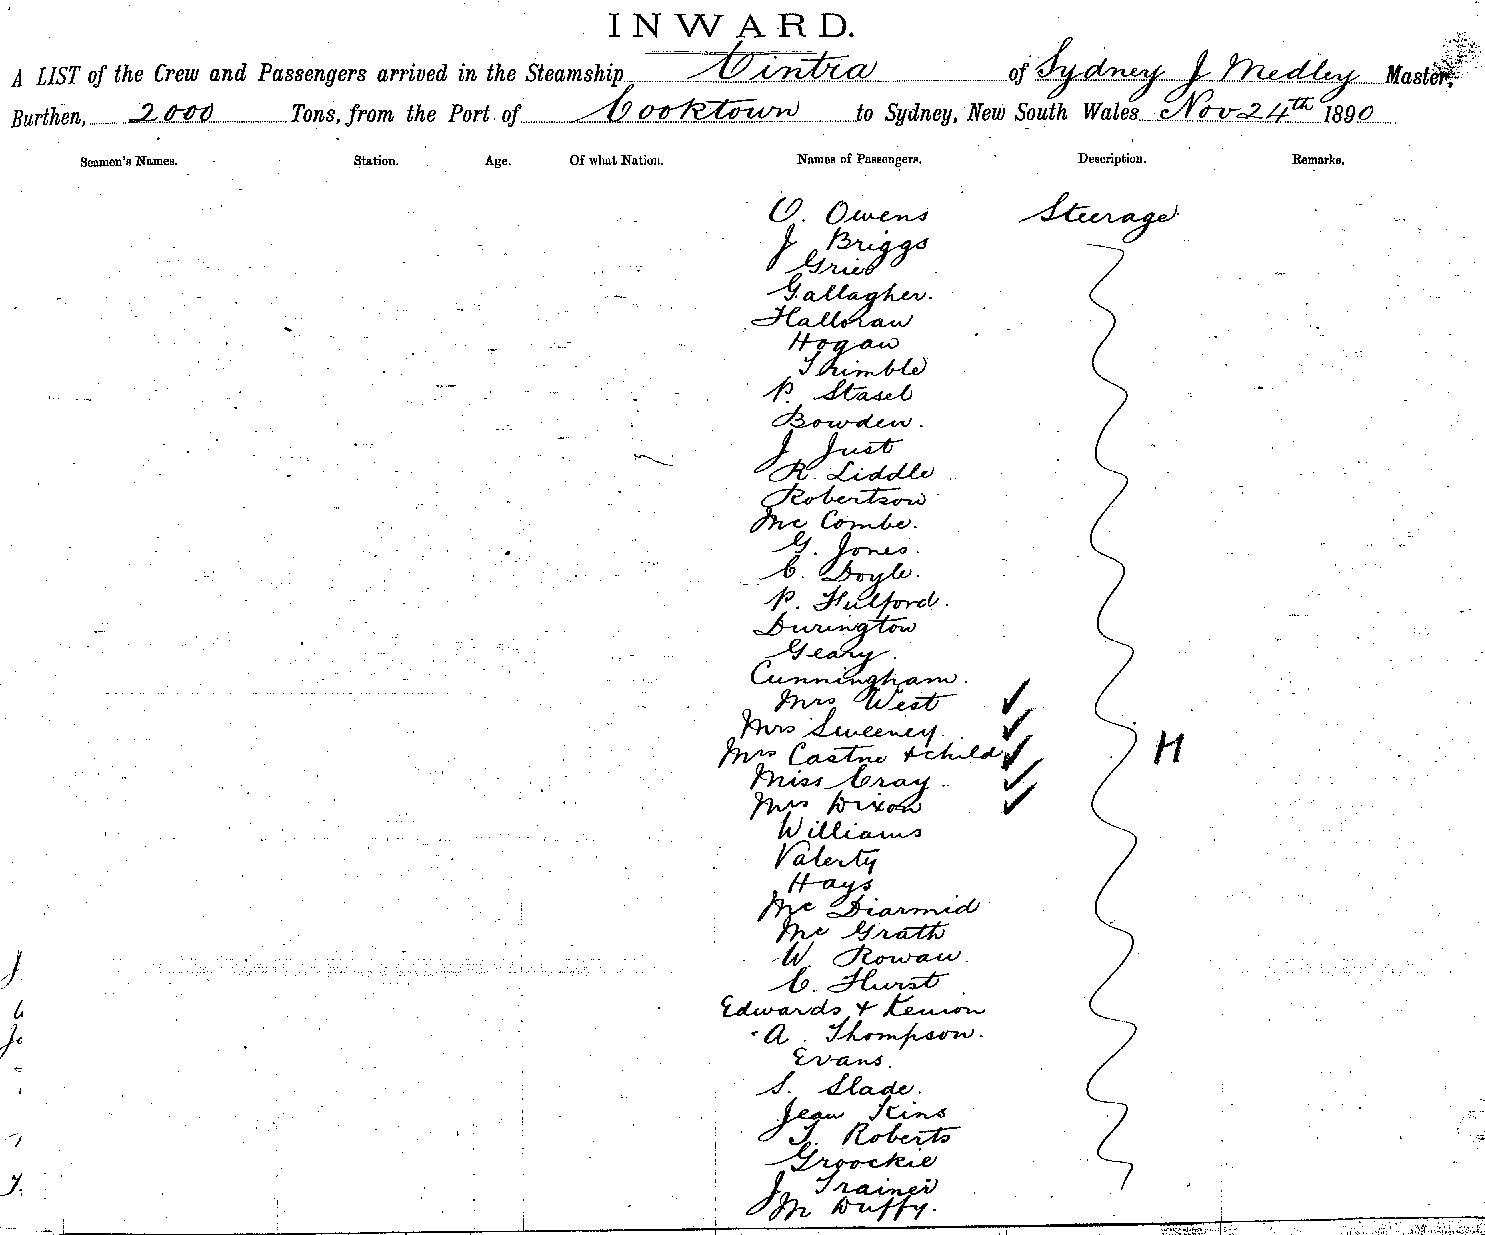 INWARD.
A LIST of the Crew and Passengers arrived in the Steamship Cintra of Sydney J Medley Master,
Burthen, 2000 Tons, from the Port of Cooktown to Sydney, New South Wales Nov 24th 1890
Seamen's Names. Station. Age. Of what Nation. Names of Passengers. Description. Remarks.
O. Owens Steerage
J Briggs
Grieb
Gallagher.
Halloran
Hogan
Trimble
P. Stasel
Bowden.
J Just
R. Liddle
Robertson
Mc Combe.
G. Jones.
C. Doyle.
P. Hulford.
Durington
Geary.
Cunningham.
Mrs West ✓
Mrs Sweeney. ✓
Mrs Castne + child ✓ H
Miss Cray ✓
Mrs Dixon ✓
Williams
Valerty
Hays
Mc Diarmid
Mc Grath
W Rowan
C. Hurst
Edwards + Kenion
A. Thompson.
Evans.
S. Slade.
Jean Kins
T. Roberts
Groockie
J Trainer
M Duffy.